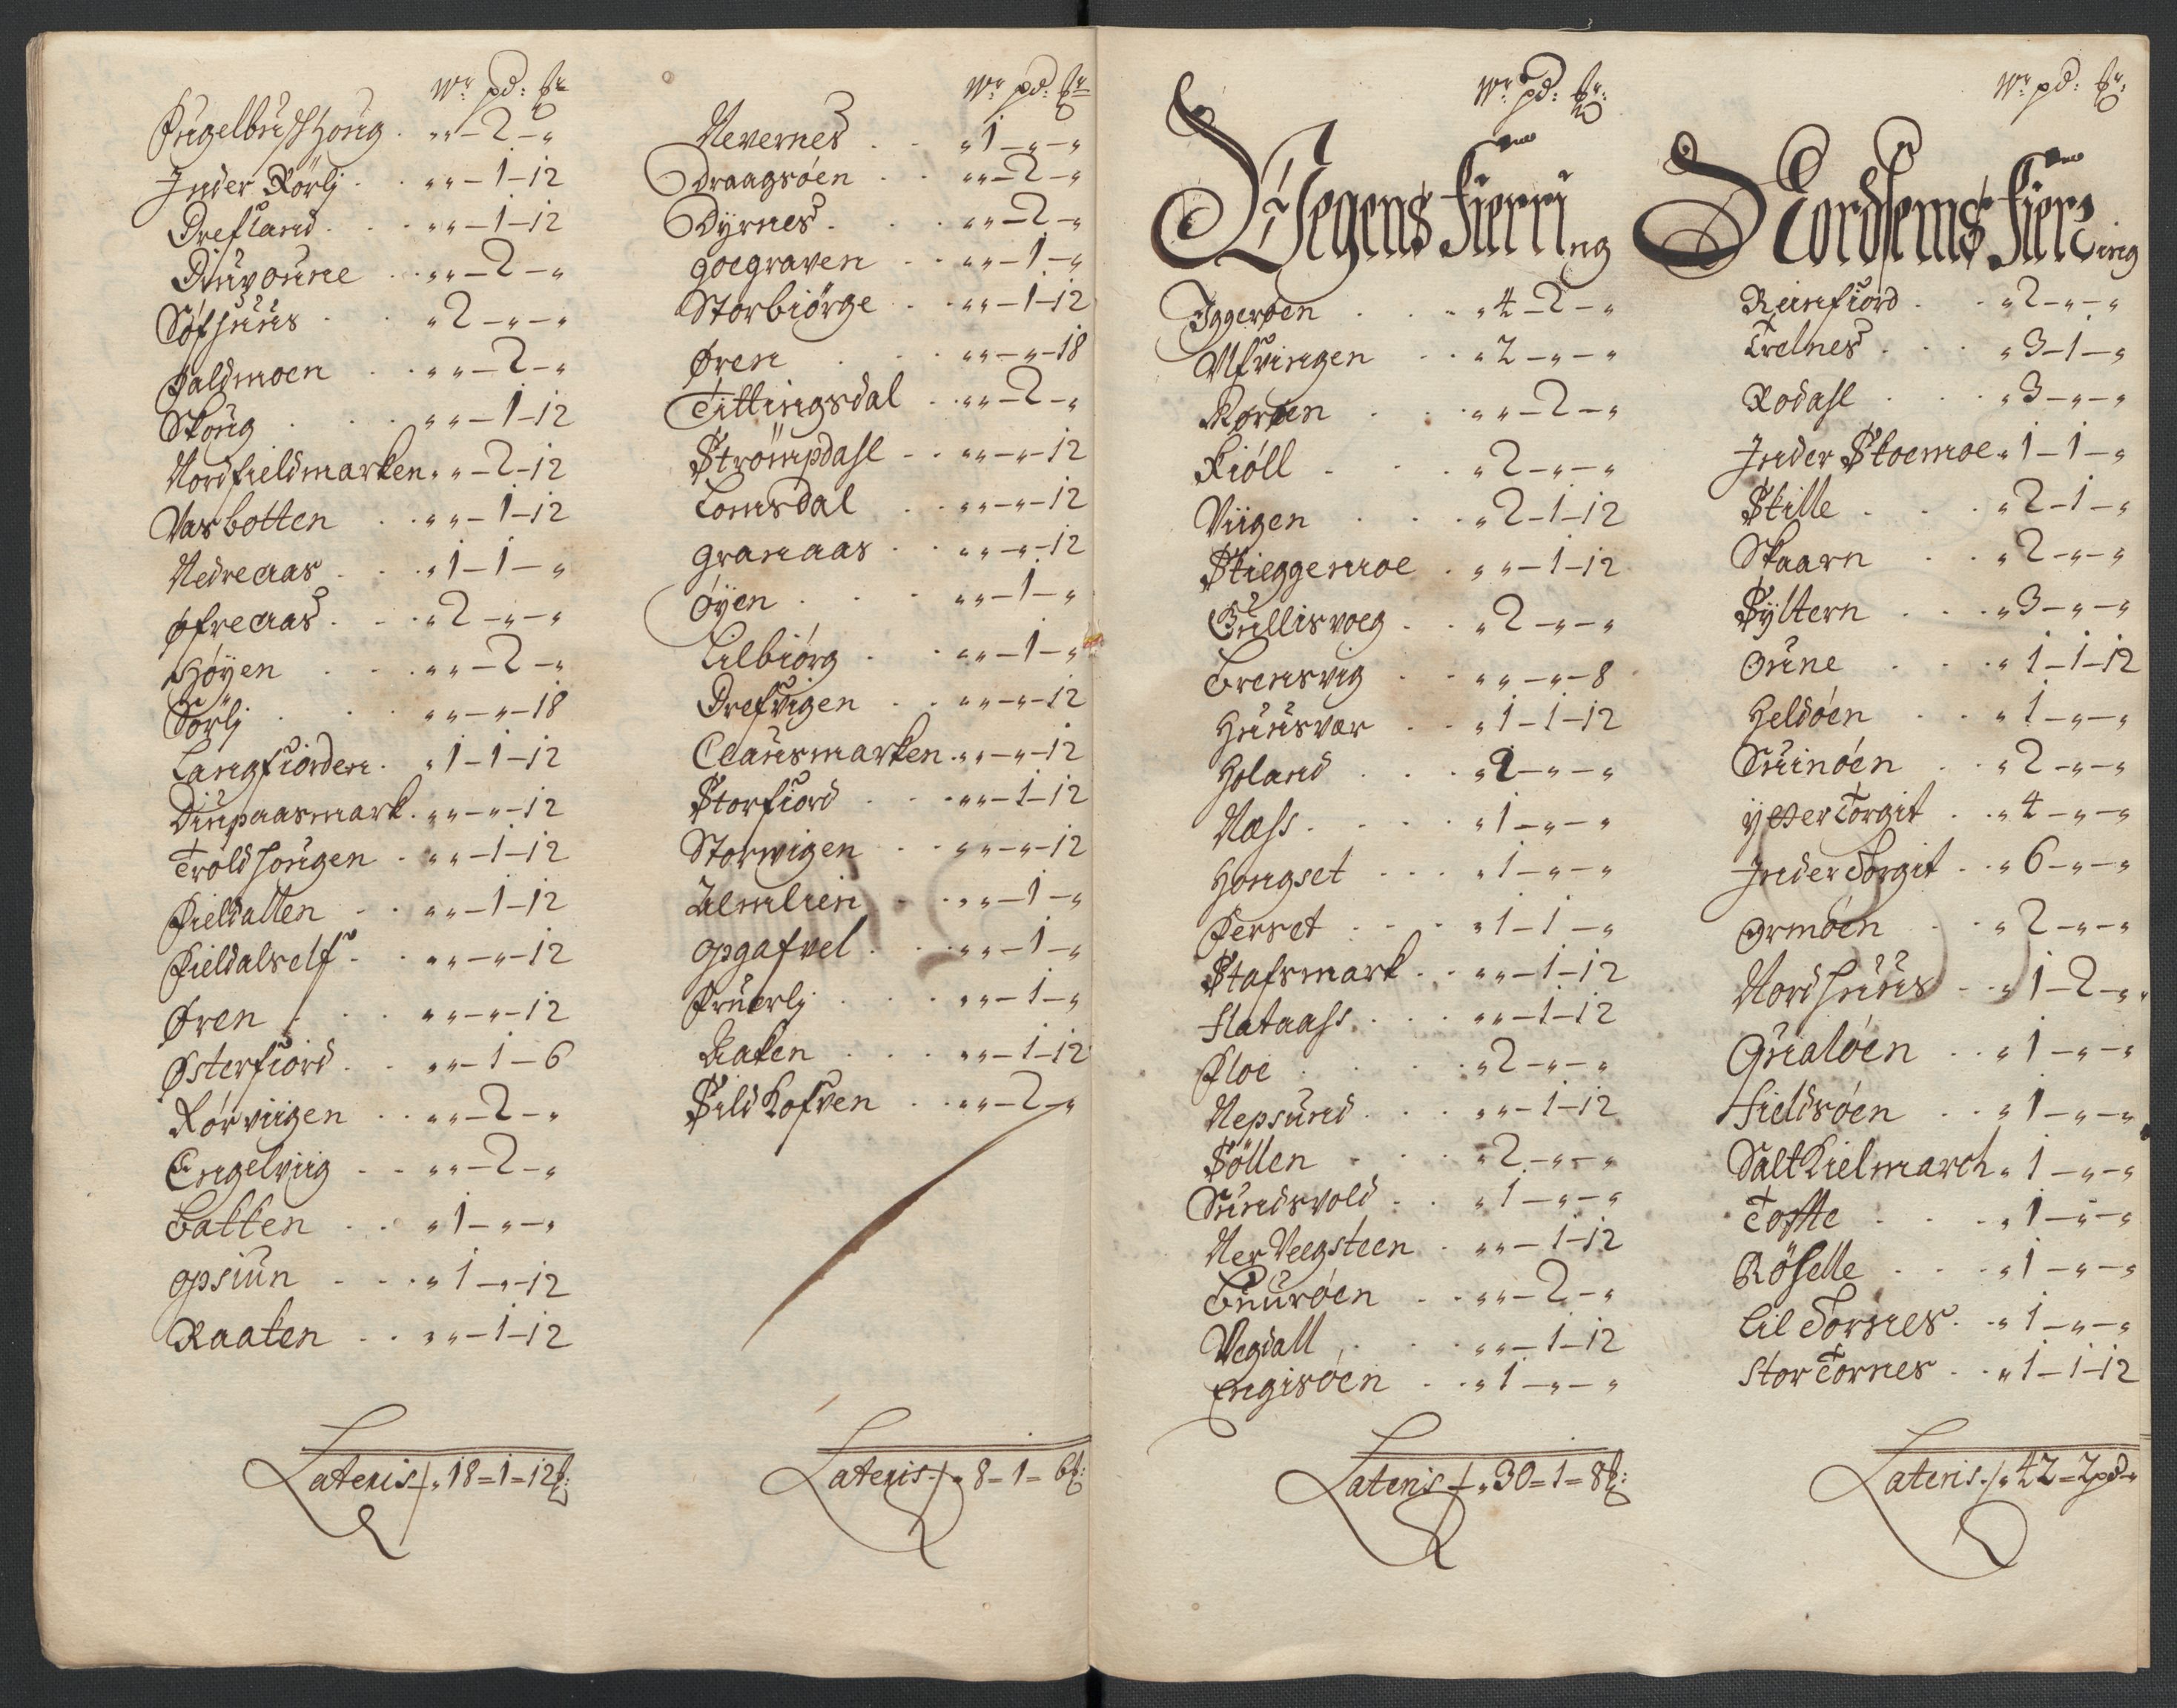 Wr pd: ℔r
Fugelbus Houg . „„–2–„
Inder Rørlj . . „„–1–12
Drefland . . . „„–1–12
Diuvoune . . „„–2–„
Søfhuus . . „2–„–„
Faldmoen . . „„–2–„
Skoug . . . „„–1–12
Nordfieldmarken „„–2–12
Vasbotten . . „„–1–12
Nedreaas . . „1–1–„
Øfreaas . . . „2–„–„
Høyen . . . „„–2–„
Sørlj . . . „„–„–18
Langfiorden . „1–1–12
Diupaasmark . „„–„–12
Troldhougen . „„–1–12
Fieldatten . . „„–1–12
Fieldalself . . „„–„–12
Øren . . . „„–„–12
Østerfiord . . „„–1–6
Rørviigen . . „„–2–„
Engelviig . . „„–2–„
Batten . . „1–„–„
Opsiun . . . „1–„–12
Raaten . . „„–1–12
Lateris „18=1=12℔:
Wr pd: ℔r
Nevernes . . „1–„–„
Draagsøen . . „„–2–„
Dyrnes . . . „„–2–„
Goegraven . . „„–1–„
Storbiørge . . „„–1–12
Øren . . . „„–„–18
Tittingsdal . „„–2–„
Strømpdahl . . „„–„–12
Lomsdal . . „„–„–12
Granaas . . „„–„–12
Øyen . . . „„–1–„
Lilbiørg . . „„–1–„
Drefvigen . . „„–„–12
Clausmarken . „„–„–12
Storfiord . . „„–1–12
Storvigen . . „„–„–12
Almlien . . „„–1–„
Opgafvel . . „„–1–„
Fruerlj . . . „„–1–„
Aaken . . . „„–1–12
Sildkofven . . „„–2–„
Lateris „8=1=6℔:
Wr pd: ℔r:
Wegens Fierring
Iggerøen . . . „4–2–„
Ulfvingen . . „2–„–„
Rorøen . . . „„–2–„
Kiøll . . . „2–„–„
Viigen . . . „2–1–12
Skieggemoe . „„–1–12
Gullisvoeg . . „2–„–„
Bremsvig . . „„–„–8
Huusvær . . „1–1–12
Holand . . . „2–„–„
Næss . . . „1–„–„
Hongset . . . „1–„–„
Ferset . . . „1–1–„
Stafsmark . . „„–1–12
Flataass . . . „„–1–12
Floe . . . „2–„–„
Nepsund . . . „„–1–12
Søllen . . . „2–„–„
Sundsvold . . „1–„–„
Ner Veegsteen . „„–1–12
Buurøen . . „„–2–„
Vegdall . . . „„–1–12
Engisøen . . „1–„–„
Lateris „30=1=8℔:
Wr pd: ℔r:
Nordhems Fierring
Reinfiord . . „2–„–„
Trelnes . . . „3–1–„
Rodahl . . . „3–„–„
Inder Stoemoe „1–1–„
Stille . . . „2–1–„
Skaarn . . „2–„–„
Syltern . . . „3–„–„
Oune . . . „1–1–12
Heldøen . . „1–„–„
Suinøen . . „2–„–„
Ytter Torgit . „4–„–„
Inder Torgit . . „6–„–„
Ormøen . . „2–„–„
Nordhuus . . „1–2–„
Qualøen . . „1–„–„
Fieldsøen . . „1–„–„
Saltkielmarch „1–„–„
Tofte . . . „1–„–„
Røhelle . . . „1–„–„
Lil Tornes . . „1–„–„
Stor Tornes . . „1–1–12
Lateris „42=2pd=„